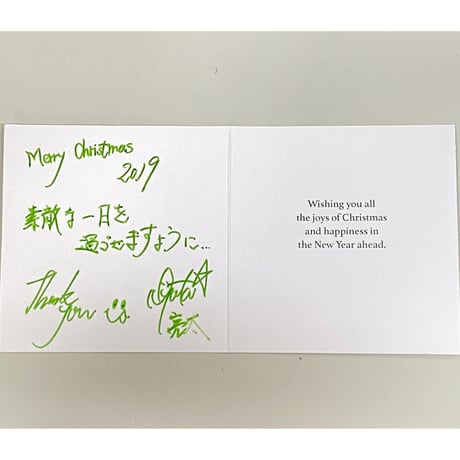 Merry Christmas
2019
素敵な一日を
過ごせますように...
Thank
you
亮太
Wishing you all
the joys of Christmas
and happiness in
the New Year ahead.